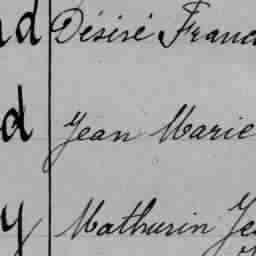 d Désiré Franc
d Jean Marie
y Mathurin Je